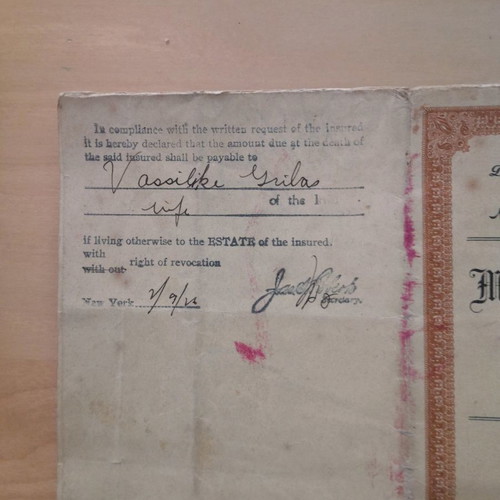 In compliance with the written request of the insured
it is hereby declared that the amount due at the death of
the said insured shall be payable to
Vassilike Grilas
wife of the
if living otherwise to the ESTATE of the insured.
with
with out right of revocation
New York
M